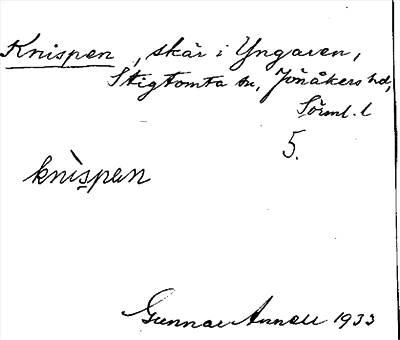 Knispen, skär i Yngaren,
Stigtomta sn, Jönåkers hd,
Sörml. l
5.
knìspen
Gunnar Annell 1933